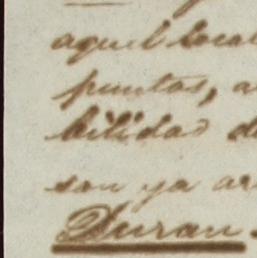 aquel local
puntos, a
bilidad d
son ya ar
Duran.